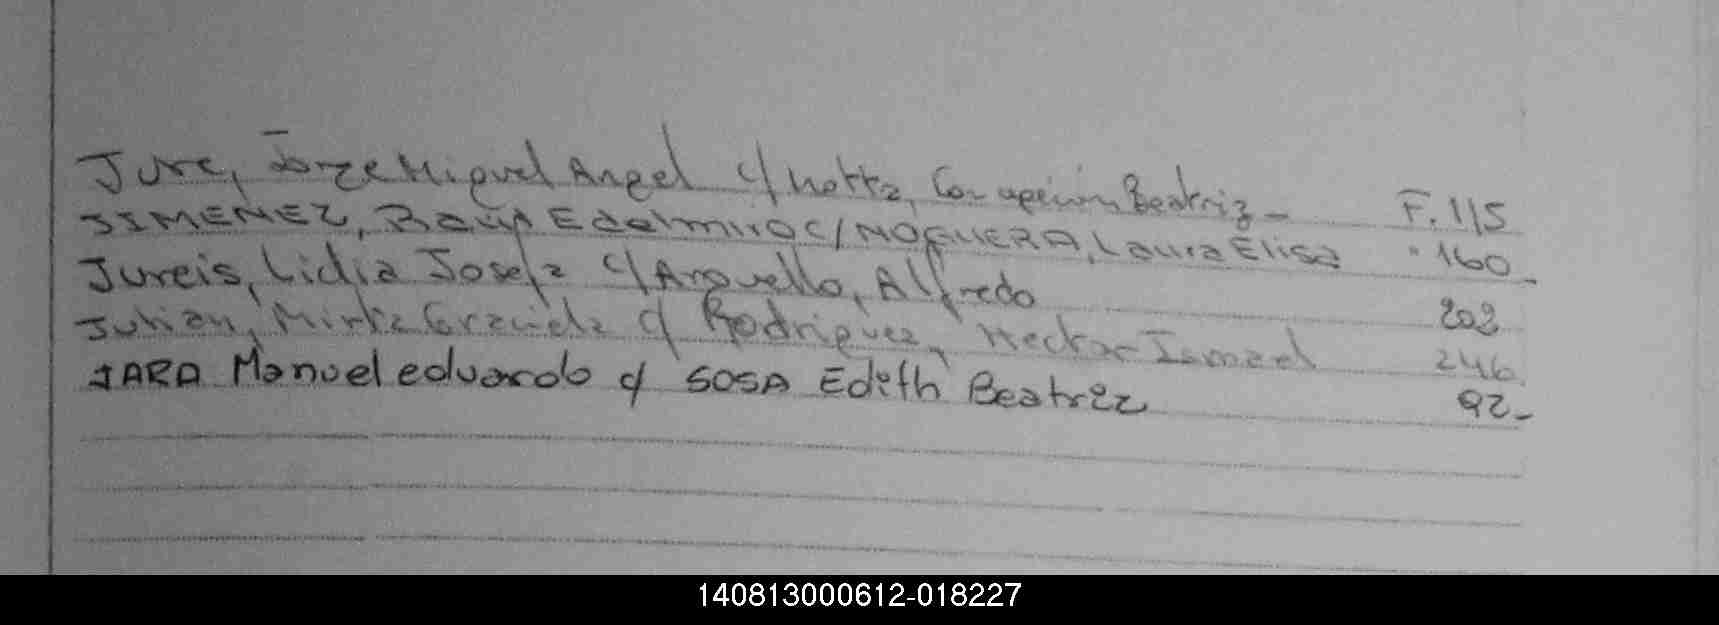 Jure, Jorge Miguel Angel c/ Beatriz - F. 115
JIMENEZ, Raúl Edelmiro C/ NOGUERA, Laura Elisa " 160 -
Jureis, Lidia Josefa c/ Arguello, Alfredo 202
Julian, Mirta Graciela c/ Rodriguez, Hector Ismael 246
JARA Manuel eduardo c/ SOSA Edith Beatriz 92 -
140813000612-018227